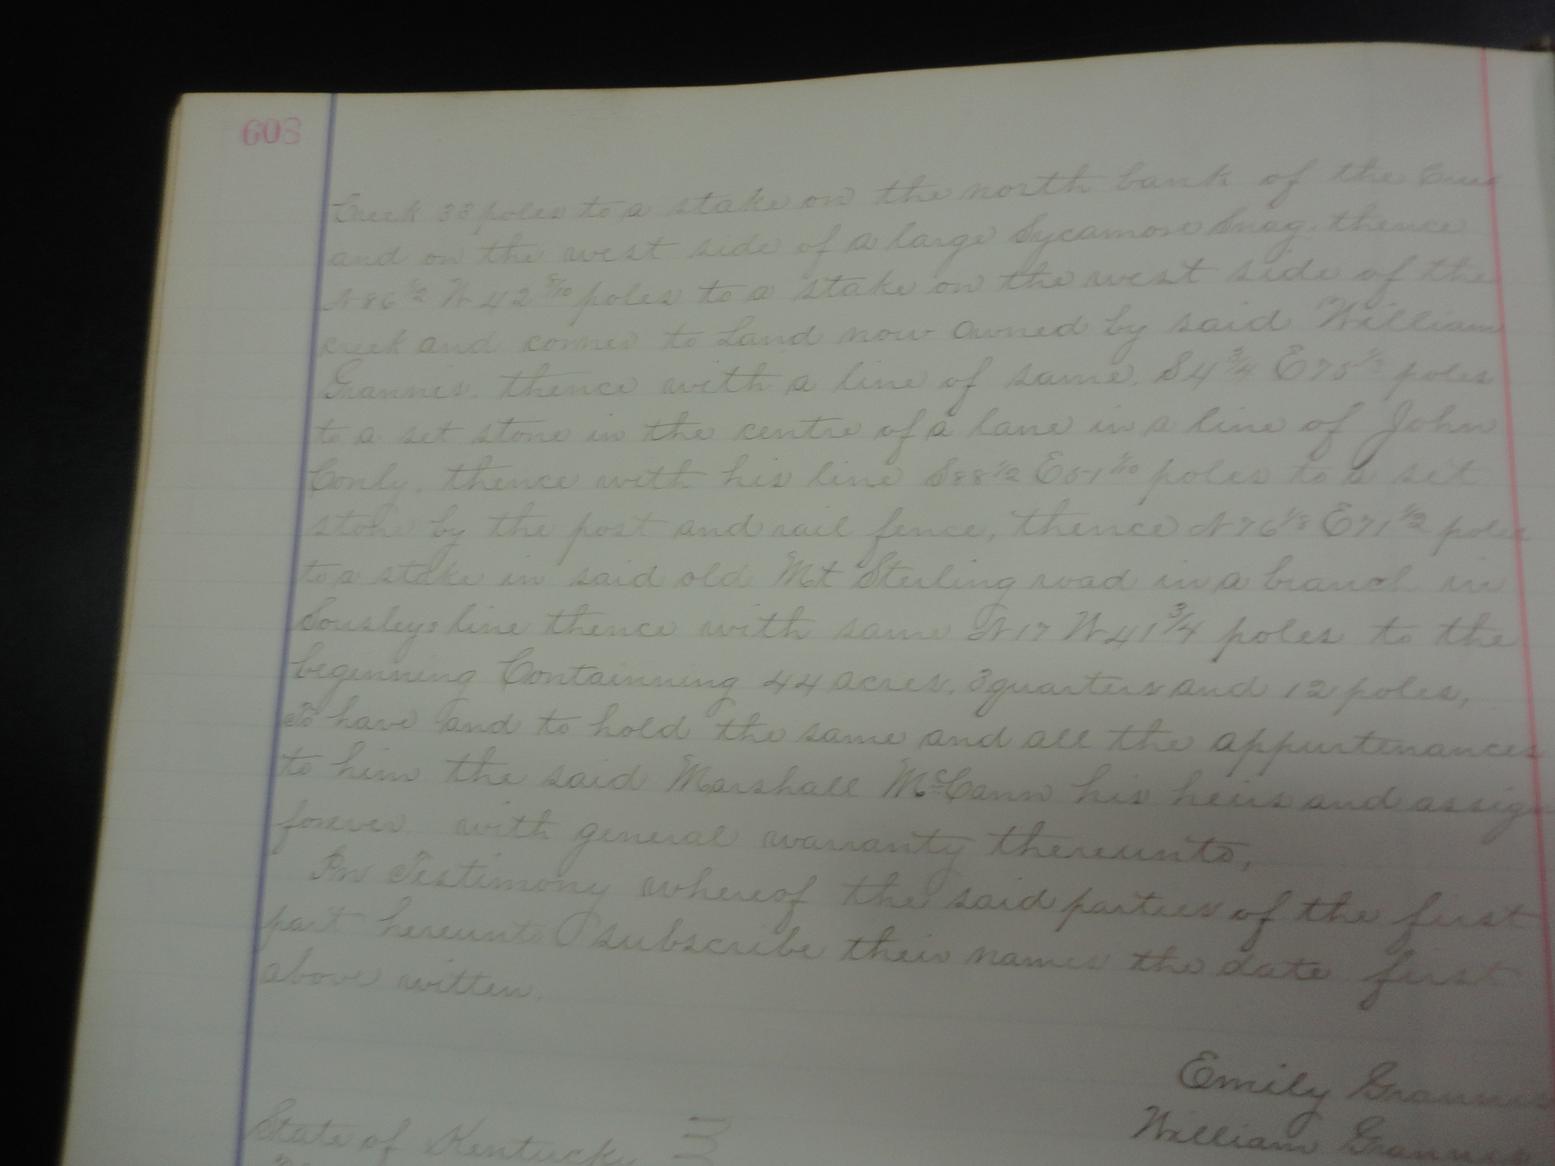 603
Creek 33 poles to a stake on the north bank of the Creek
and on the west side of a large Sycamore Snag. thence
N 86 1/2 W 42 8/10 poles to a stake on the west side of the
creek and corner to Land now owned by said William
Grannis. thence with a line of same. S 4 3/4 E 75 1/2 poles
to a set stone in the centre of a lane in a line of John
Conly. thence with his line S 88 1/2 E 61 1/10 poles to a set
stone by the post and rail fence, thence N 76 1/8 E 71 1/2 poles
to a stake in said old Mt Sterling road in a branch in
Sousleys line thence with same N 17 W 41 3/4 poles to the
beginning Containning 44 acres. 3 quarters and 12 poles,
To have and to hold the same and all the appurtenances
to him the said Marshall McCann his heirs and assign
forever with general warranty thereunto,
In Testimony whereof the said parties of the first
part hereunto subscribe their names the date first
above written.
Emily Grannis
William Grannis
State of Kentucky